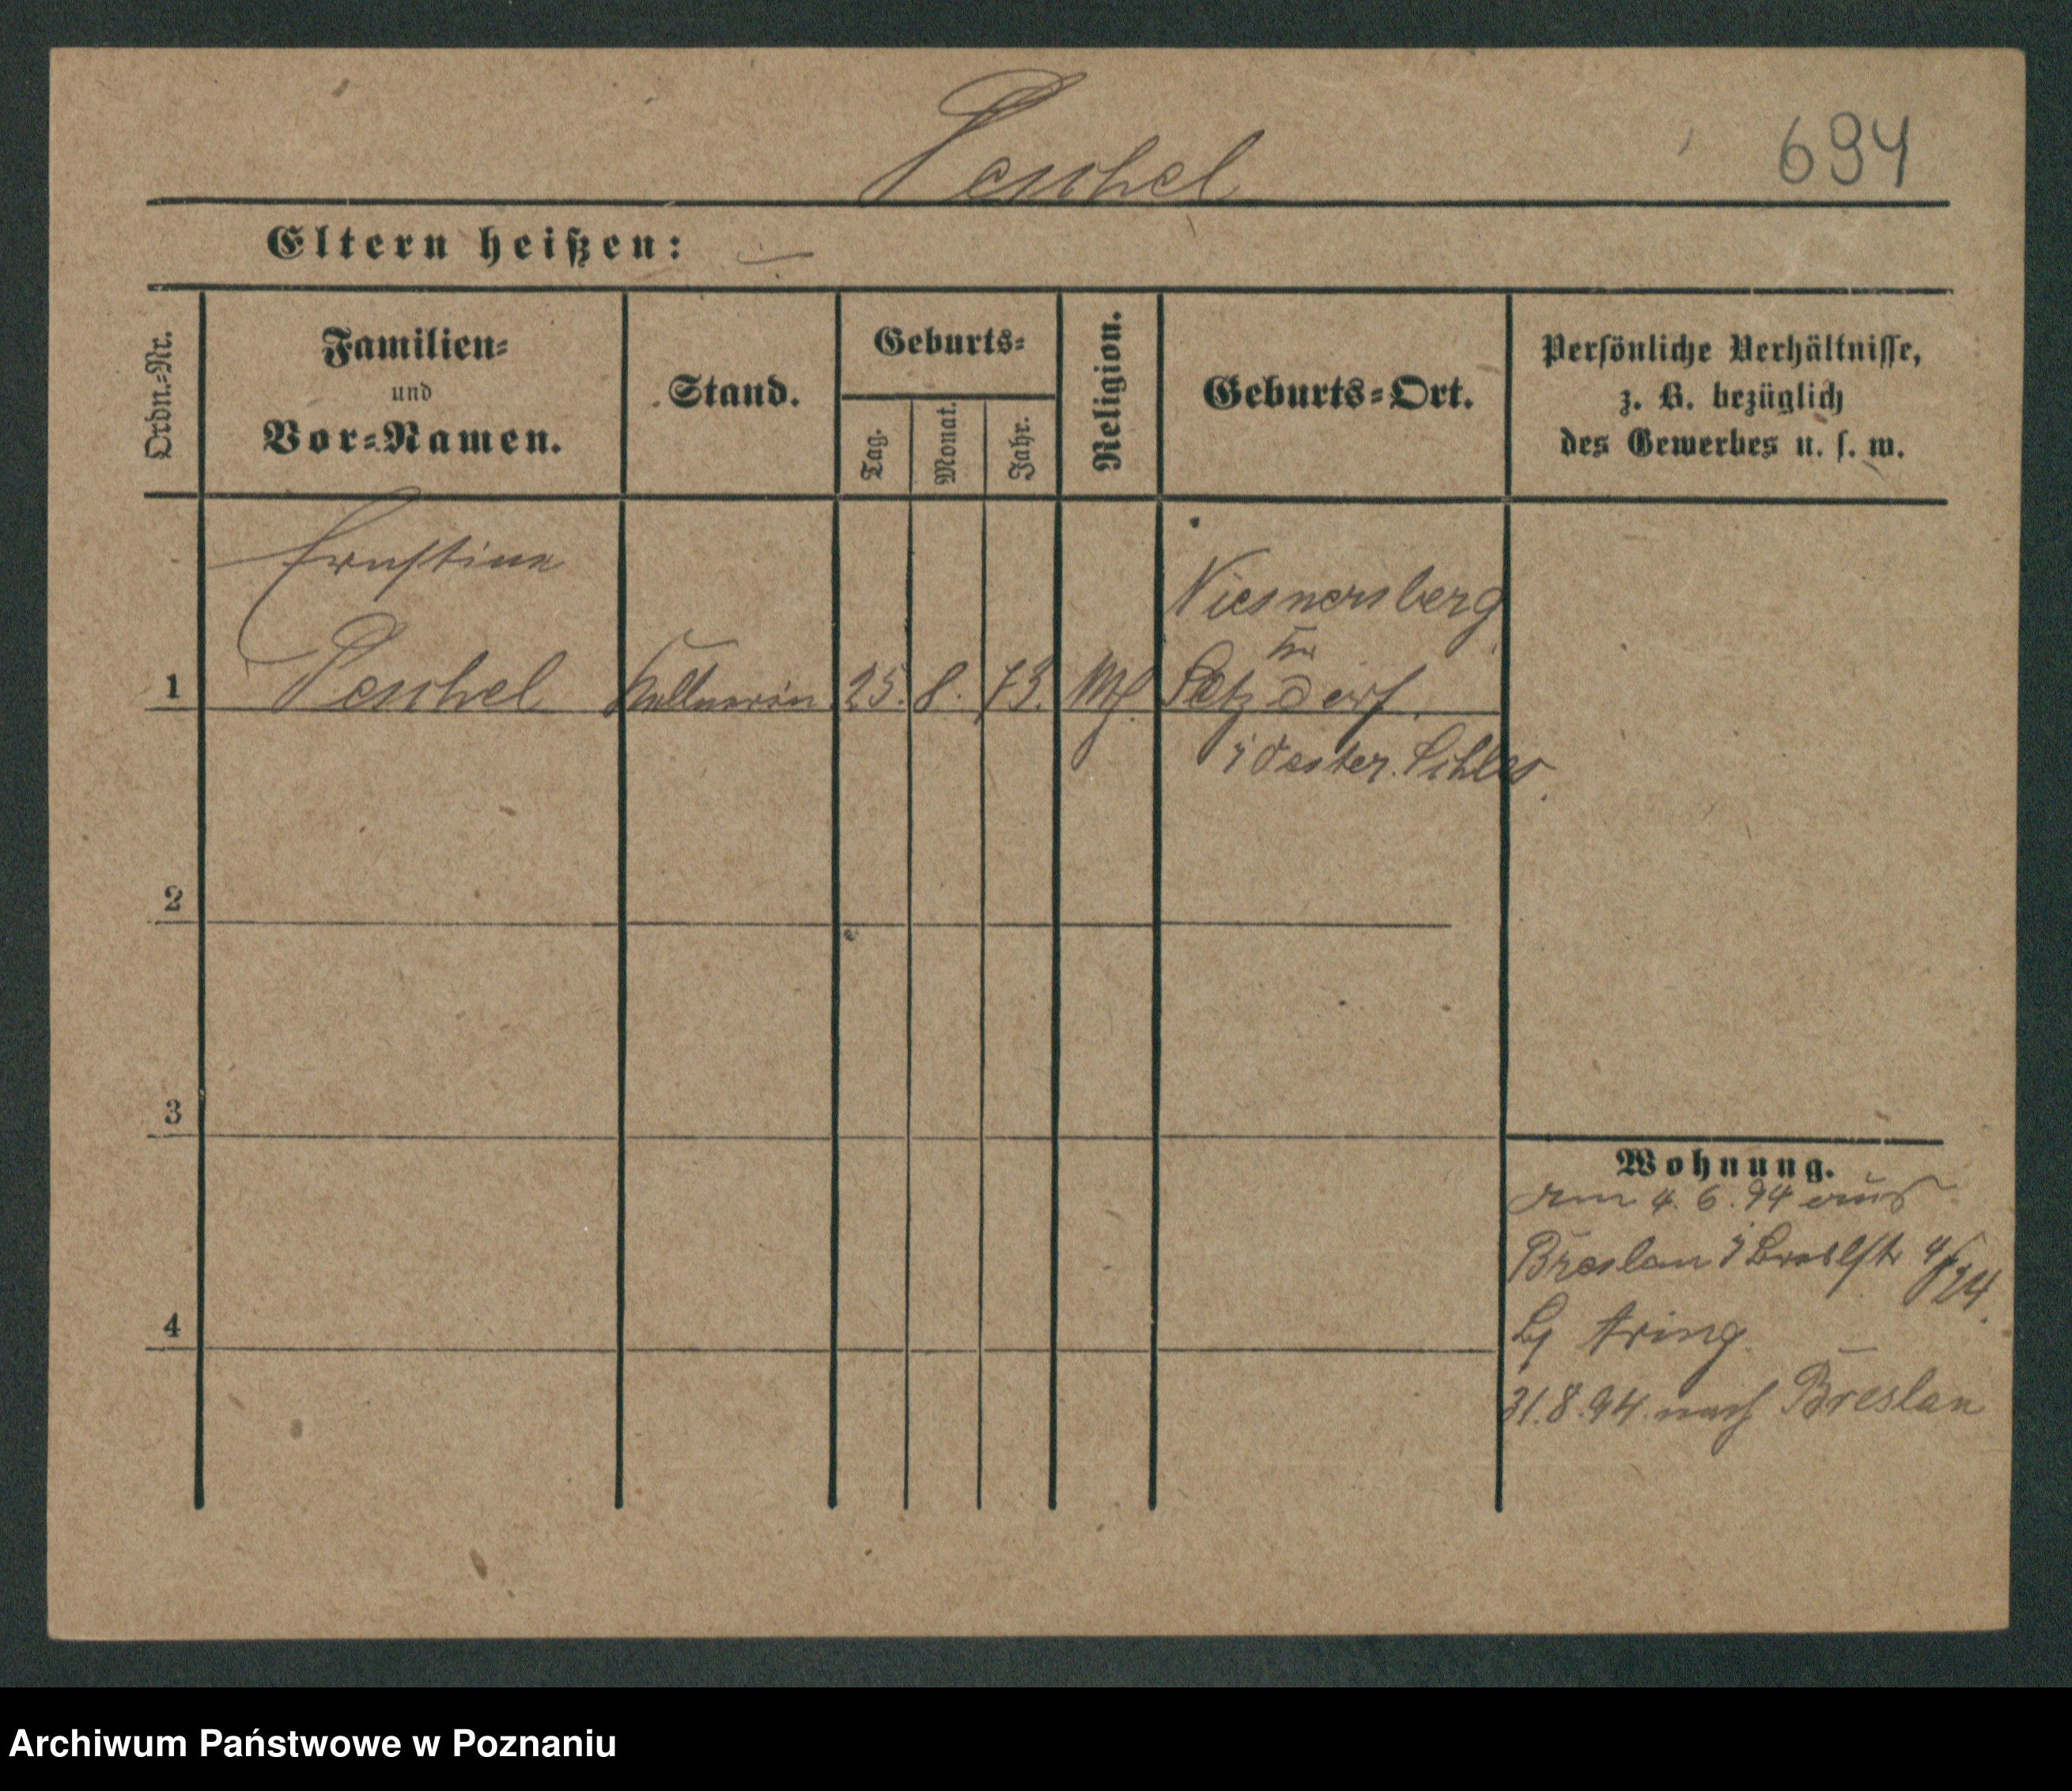 Peschel
694
Eltern heißen: —
Ordn.-Nr.
Familien-
und
Vor-Namen.
Stand.
Geburts-
Tag.
Monat.
Jahr.
Religion.
Geburts-Ort.
Persönliche Verhältnisse,
z. B. bezüglich
des Gewerbes u. s. w.
Ernstine
Niesnersberg
1 Peschel Kellnerin 25. 8. 73. Setzdorf
Oester. Schles.
2
3
Wohnung.
am 4. 6. 94 aus
Breslau
4
31. 8. 94. nach Breslau
Archiwum Państwowe w Poznaniu